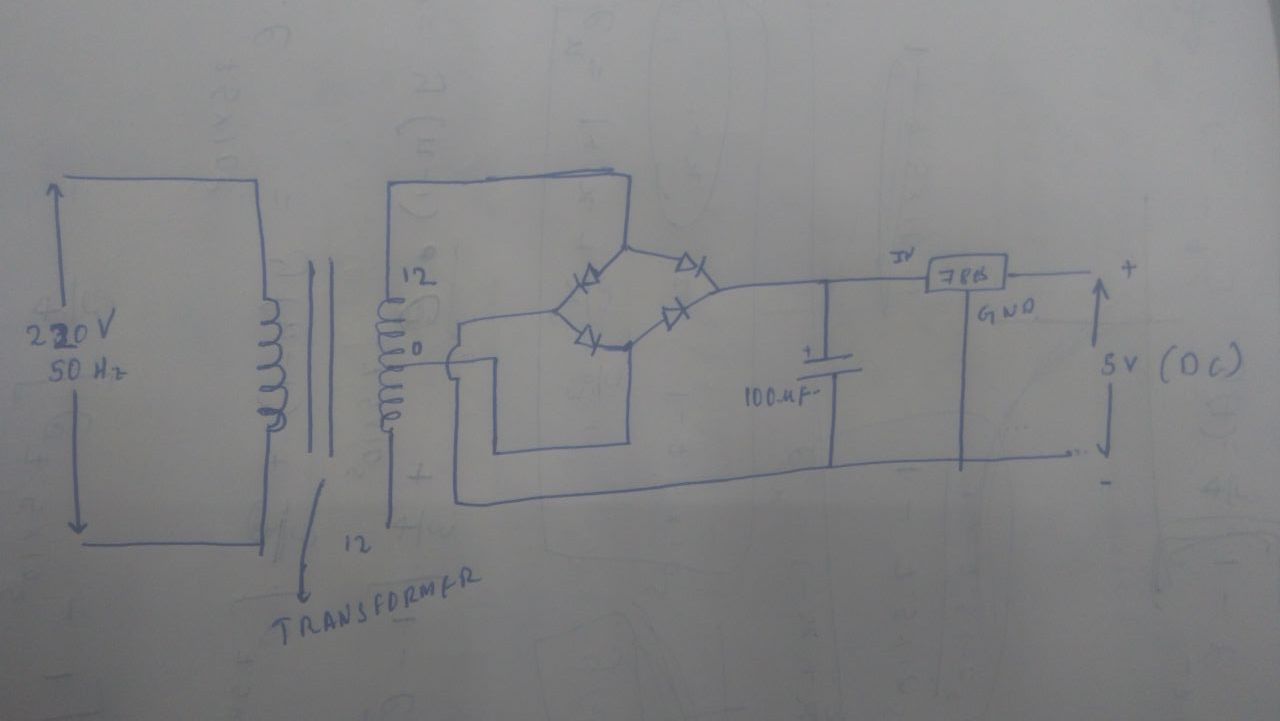 220 V
50 Hz
12
0
12
TRANSFORMER
+
100μF
IN
7805
GND
+
5V (DC)
-